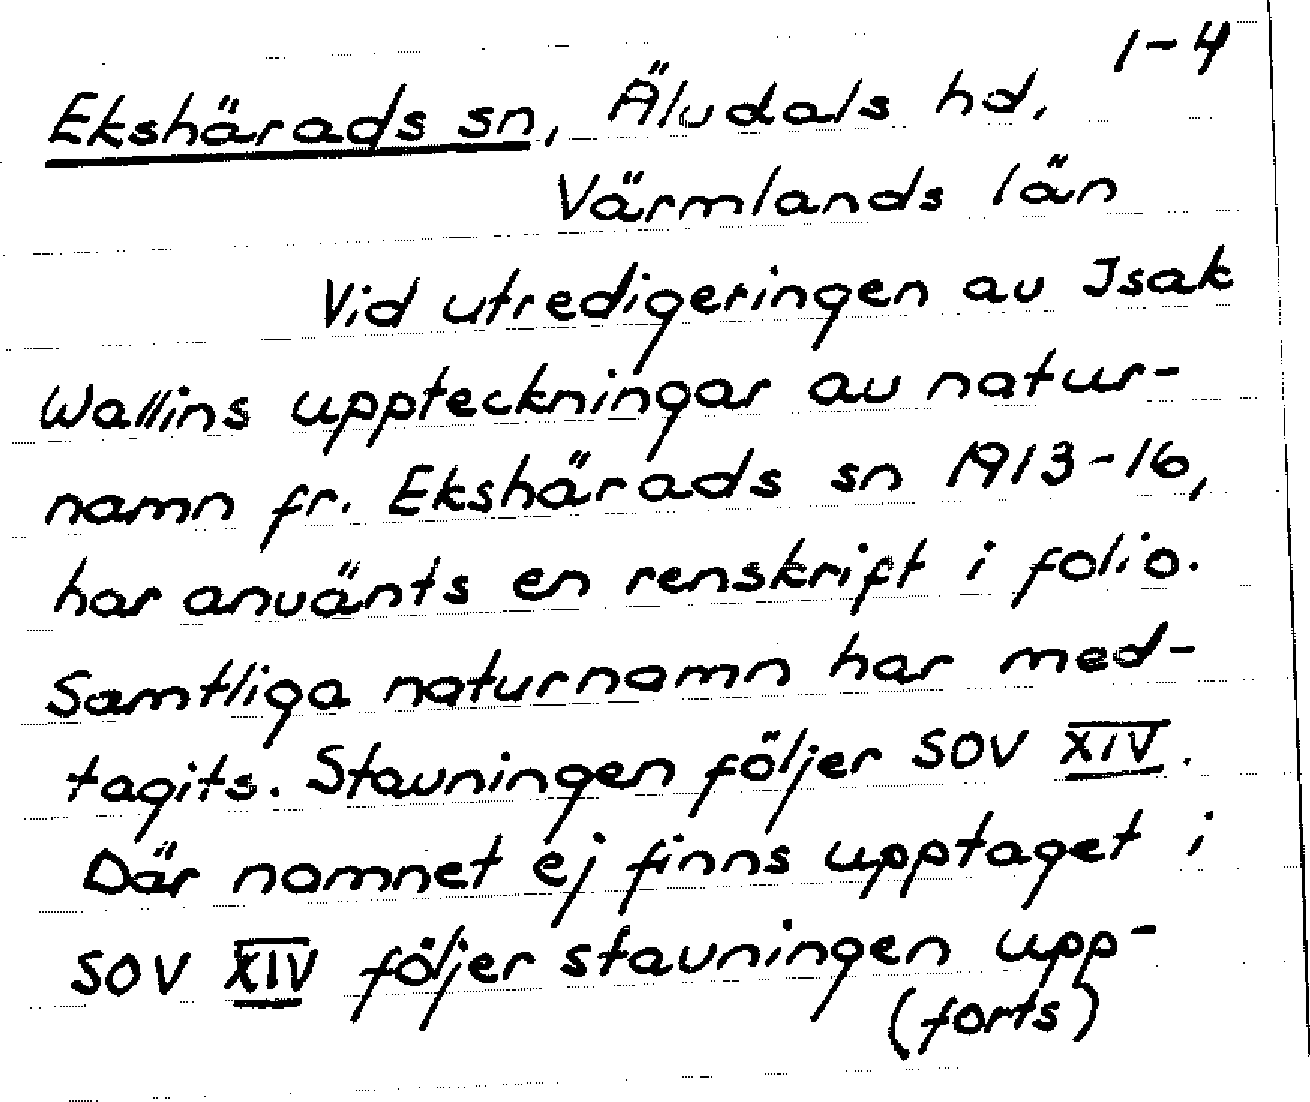 1-4
Ekshärads sn, Älvdals hd,
Värmlands län
Vid utredigeringen av Isak
Wallins uppteckningar av natur-
namn fr. Ekshärads sn 1913-16,
har använts en renskrift i folio.
Samtliga naturnamn har med-
tagits. Stavningen följer SOV XIV.
Där namnet ej finns upptaget i
SOV XIV följer stavningen upp-
(forts)